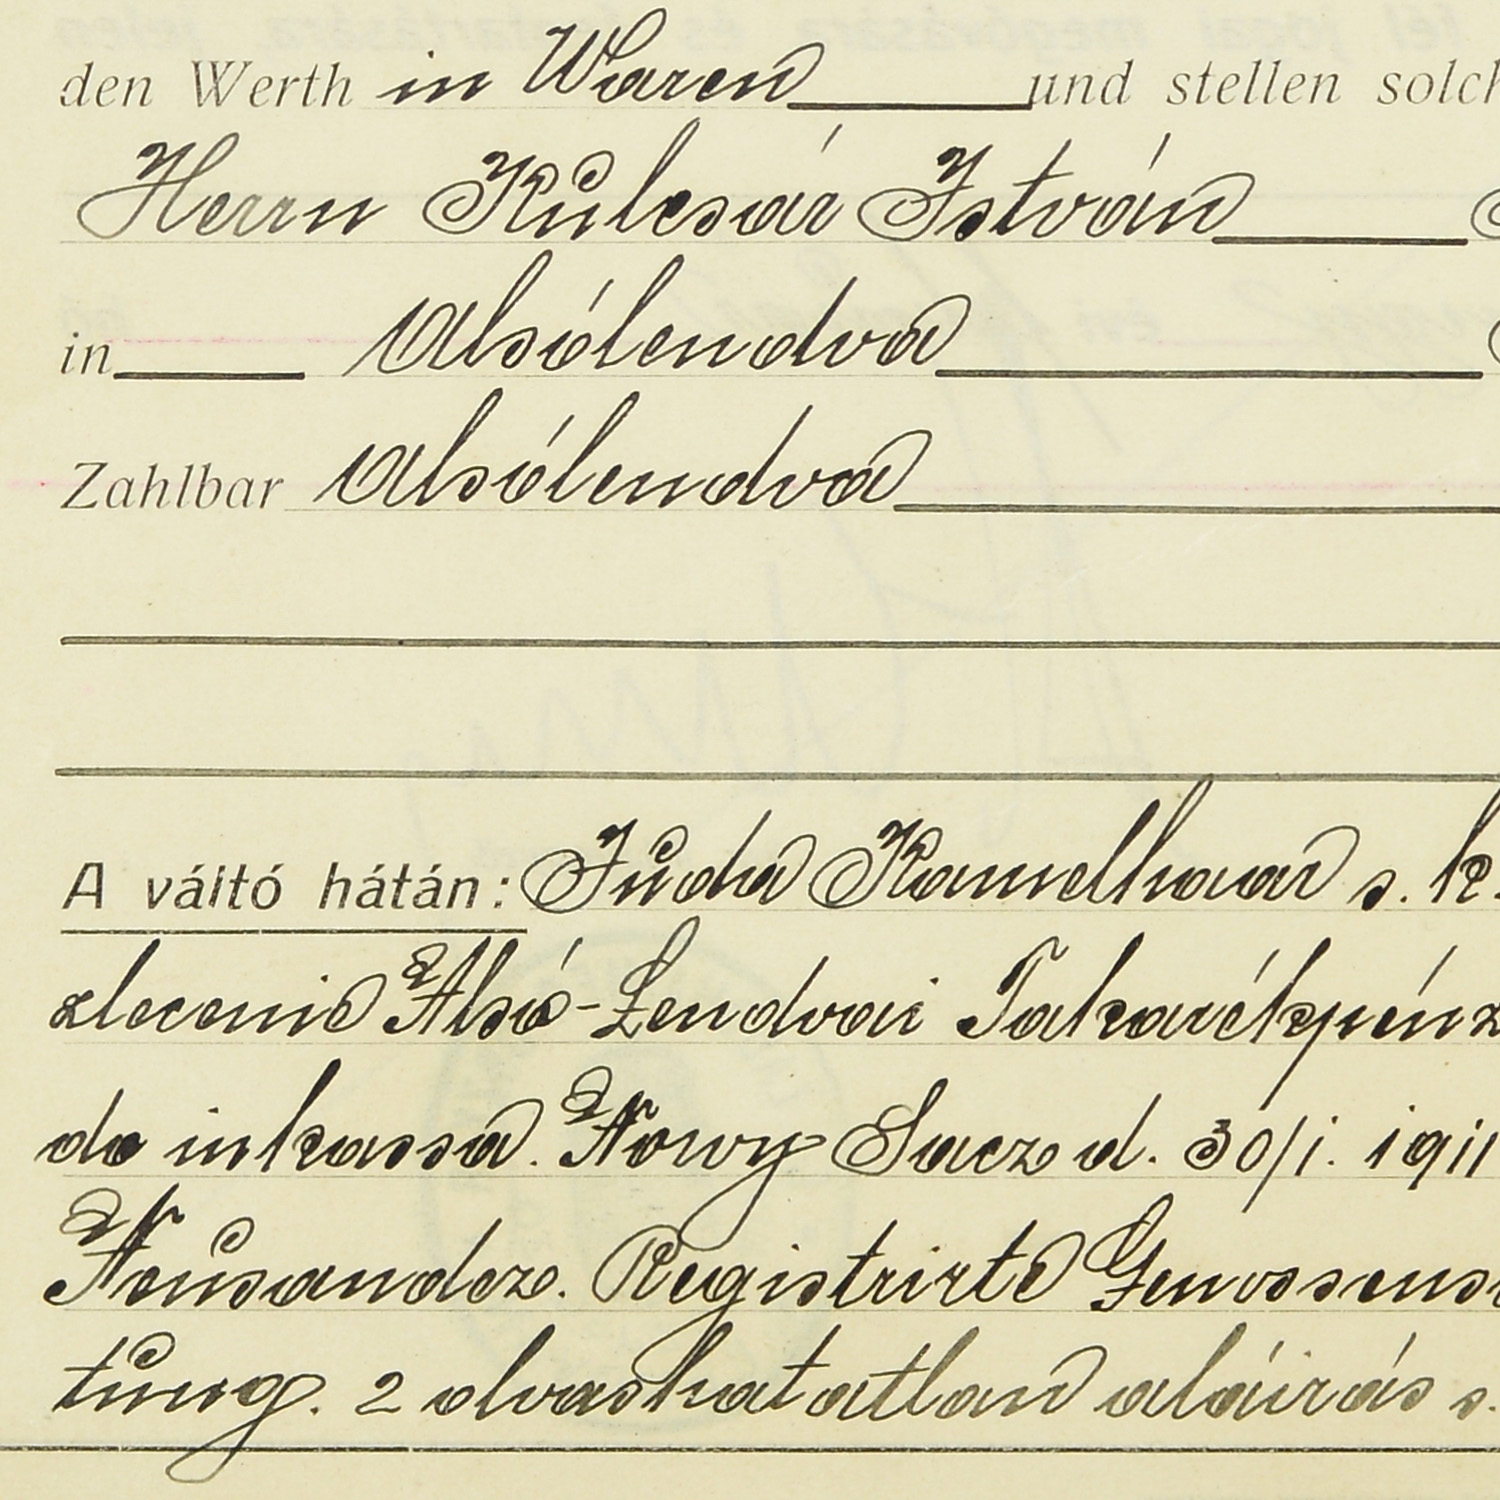 den Werth in Waren und stellen solch
Herrn Kulcsár István
in Alsólendva
Zahlbar Alsólendva
A váltó hátán: Juda Kamelhaar s. k.
zlecenie Alsó-Lendvai Takarékpénz
do inkassa. Nowy Sacz d. 30/i. 1911
Neusandez. Registrirte Genossens
tung. 2 olvashatatlan aláirás s.